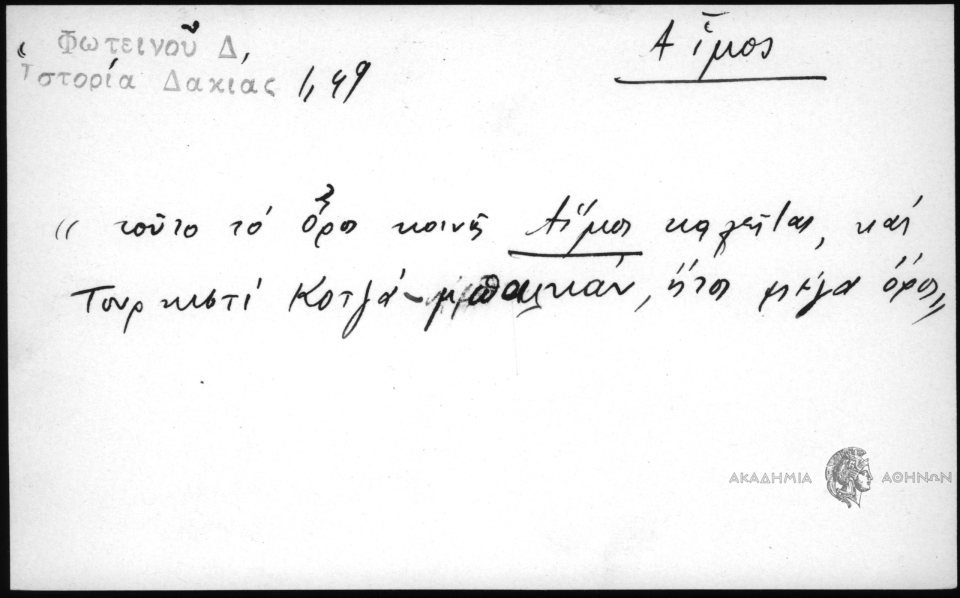 Φωτεινοῦ Δ,
Ἱστορία Δακιάς 1,49
Αἵμος
“ τοῦτο τό ὄρος κοινῶς Αἵμος καλεῖται, καί
Τουρκιστί Κοτζά-μπαλκάν, ἤτοι μέγα ὄρος„
ΑΚΑΔΗΜΙΑ ΑΘΗΝΩΝ